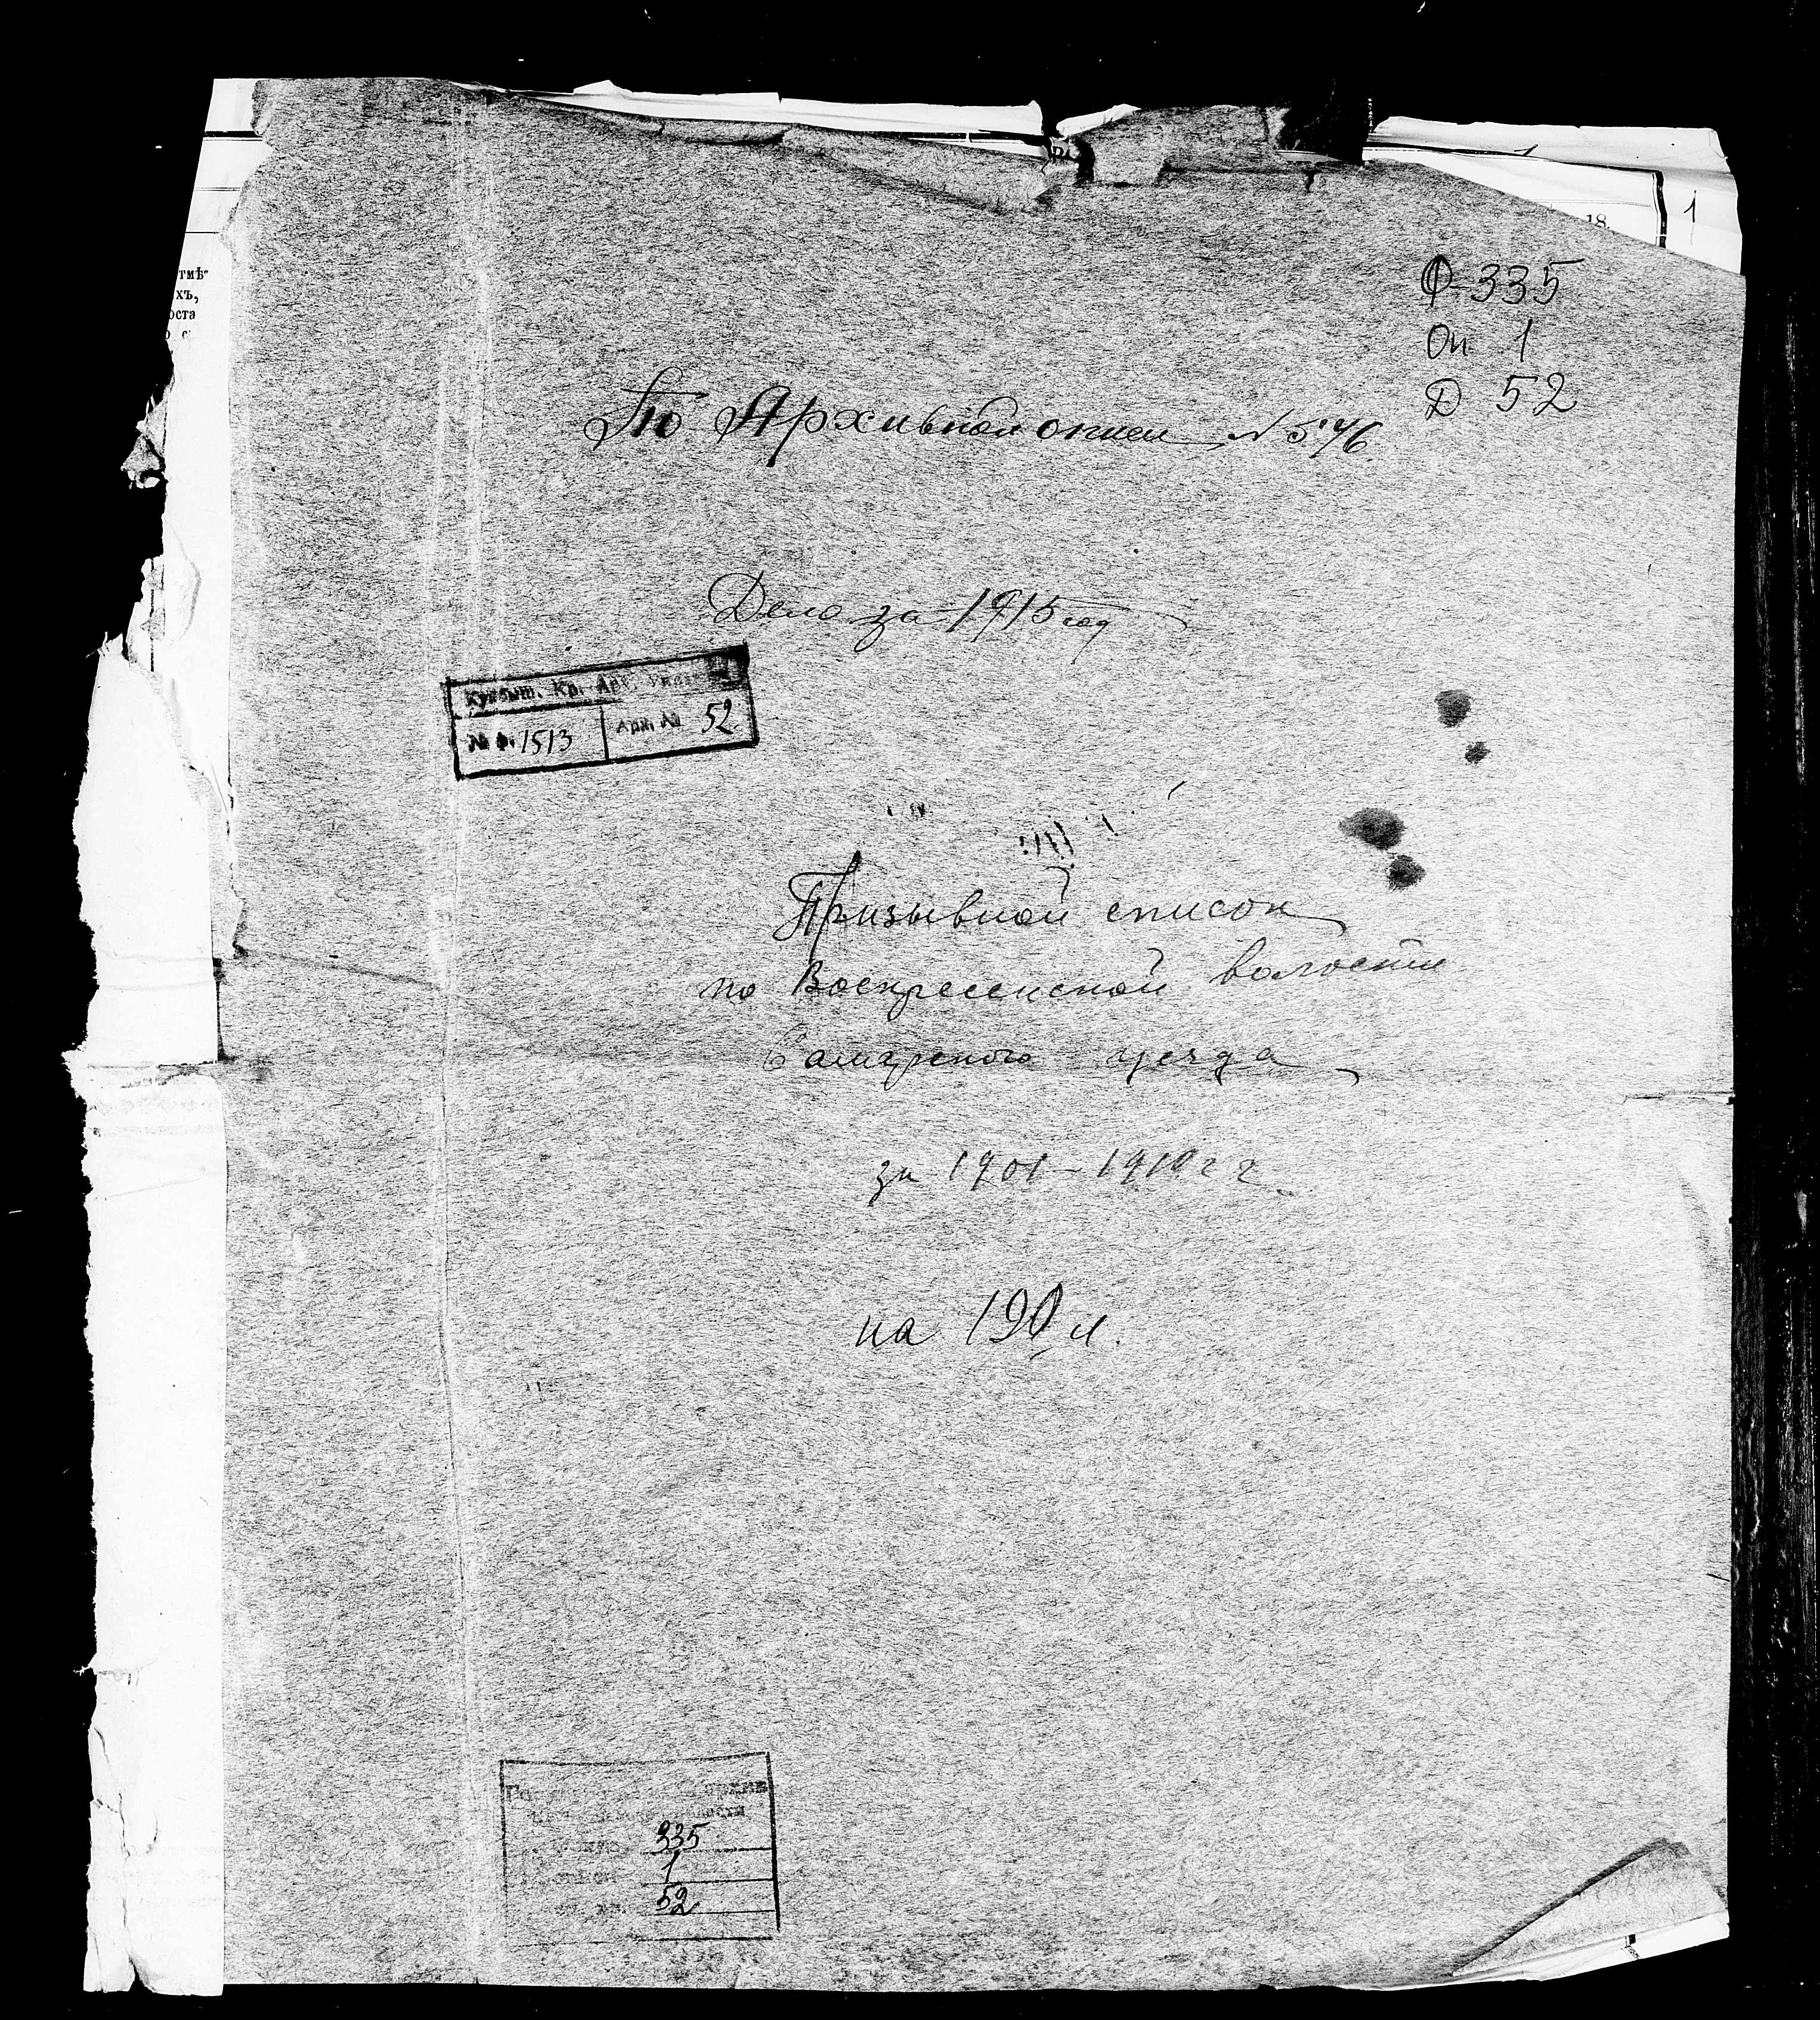 1
18
тмѣ-
хъ,
оста
Ф-335
Оп 1
Д 52
По Архивной описи № 546
Дело за 1915 год
Куйбыш. Кр. Арх.
№ ф. 1513 Арх. № 52
Призывной список
по Воскресенской волости
Самарского уезда
за 1901-1910 г г.
на 190 л.
335
1
52